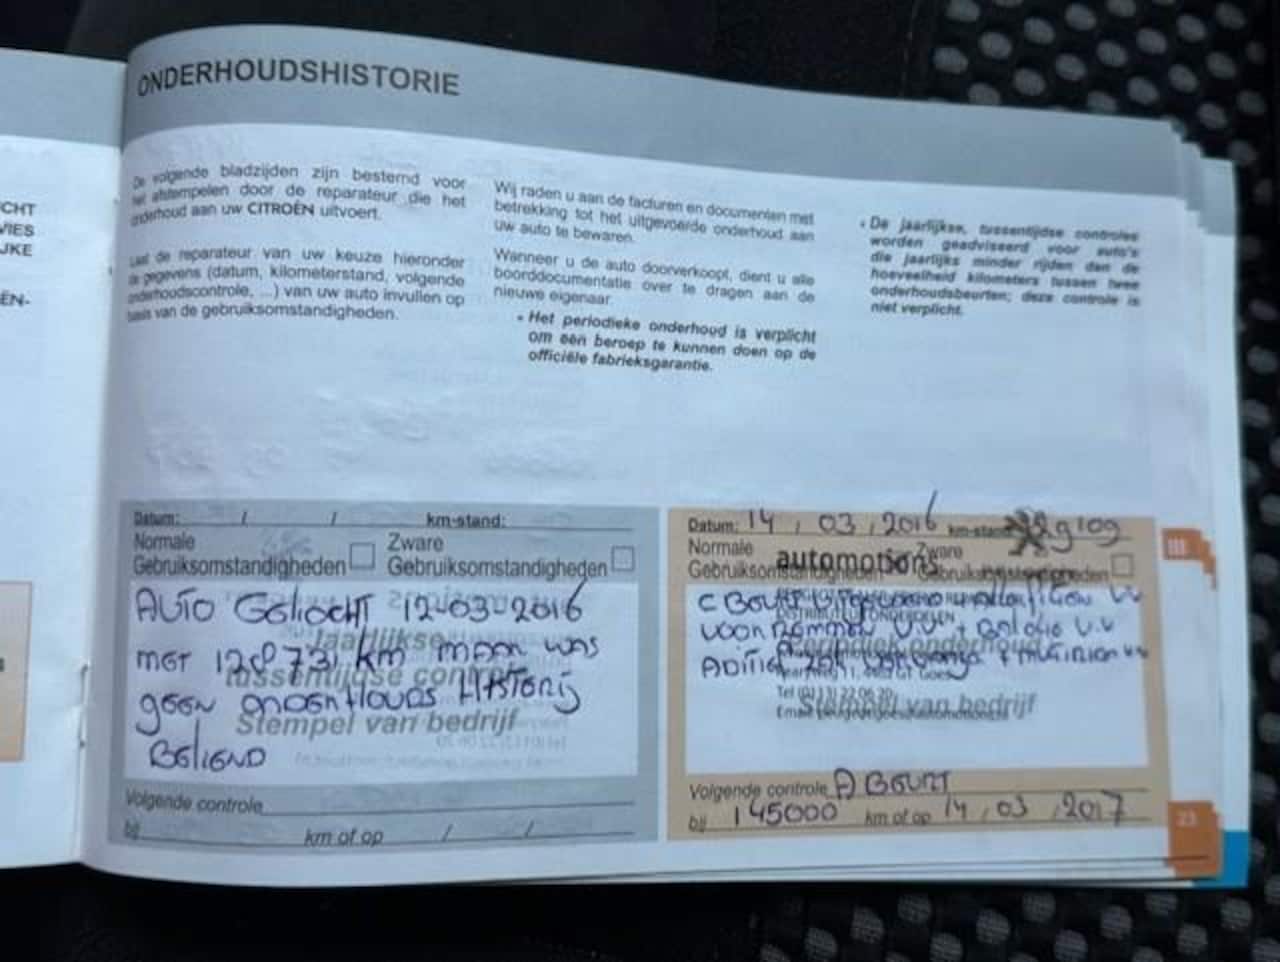 ONDERHOUDSHISTORIE
CHT
VIES
IJKE
ËN-
De volgende bladzijden zijn bestemd voor
het afstempelen door de reparateur die het
onderhoud aan uw CITROËN uitvoert.
Laat de reparateur van uw keuze hieronder
de gegevens (datum, kilometerstand, volgende
onderhoudscontrole, ...) van uw auto invullen op
basis van de gebruiksomstandigheden.
Wij raden u aan de facturen en documenten met
betrekking tot het uitgevoerde onderhoud aan
uw auto te bewaren.
Wanneer u de auto doorverkoopt, dient u alle
boorddocumentatie over te dragen aan de
nieuwe eigenaar.
• Het periodieke onderhoud is verplicht
om een beroep te kunnen doen op de
officiële fabrieksgarantie.
• De jaarlijkse, tussentijdse controles
worden geadviseerd voor auto's
die jaarlijks minder rijden dan de
hoeveelheid kilometers tussen twee
onderhoudsbeurten; deze controle is
niet verplicht.
Datum: / / km-stand:
Normale Zware
Gebruiksomstandigheden Gebruiksomstandigheden
AUTO GEKOCHT 12-03-2016
MET 128731 KM MAAR WAS
GEEN ONDERHOUDS HISTORIJ
BEKEND
Jaarlijkse
tussentijdse controle
Stempel van bedrijf
Volgende controle
bij km of op / /
Datum: 14, 03, 2016 km-stand: 29109
Normale Zware
Gebruiksomstandigheden Gebruiksomstandigheden
automotions
C BEURT
VOOR REMMEN V.V +
Periodiek onderhoud
Stempel van bedrijf
Volgende controle A BEURT
bij 145000 km of op 14, 03, 2017
III
23